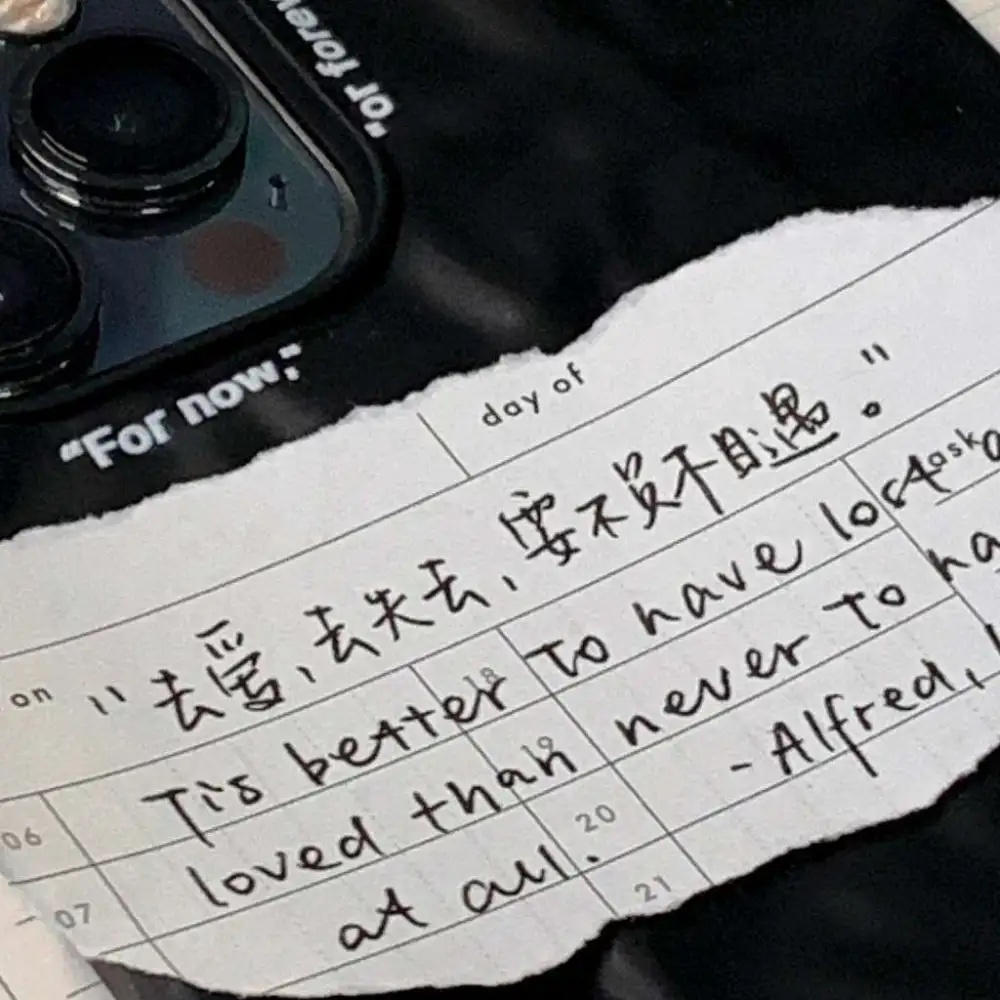 "or forev
"For now;"
day of
on
"去爱,去失去,要不负相遇。"
task
06
07
18
19
20
21
Tis better to have lost a
loved than never to ha
at all.
-Alfred,